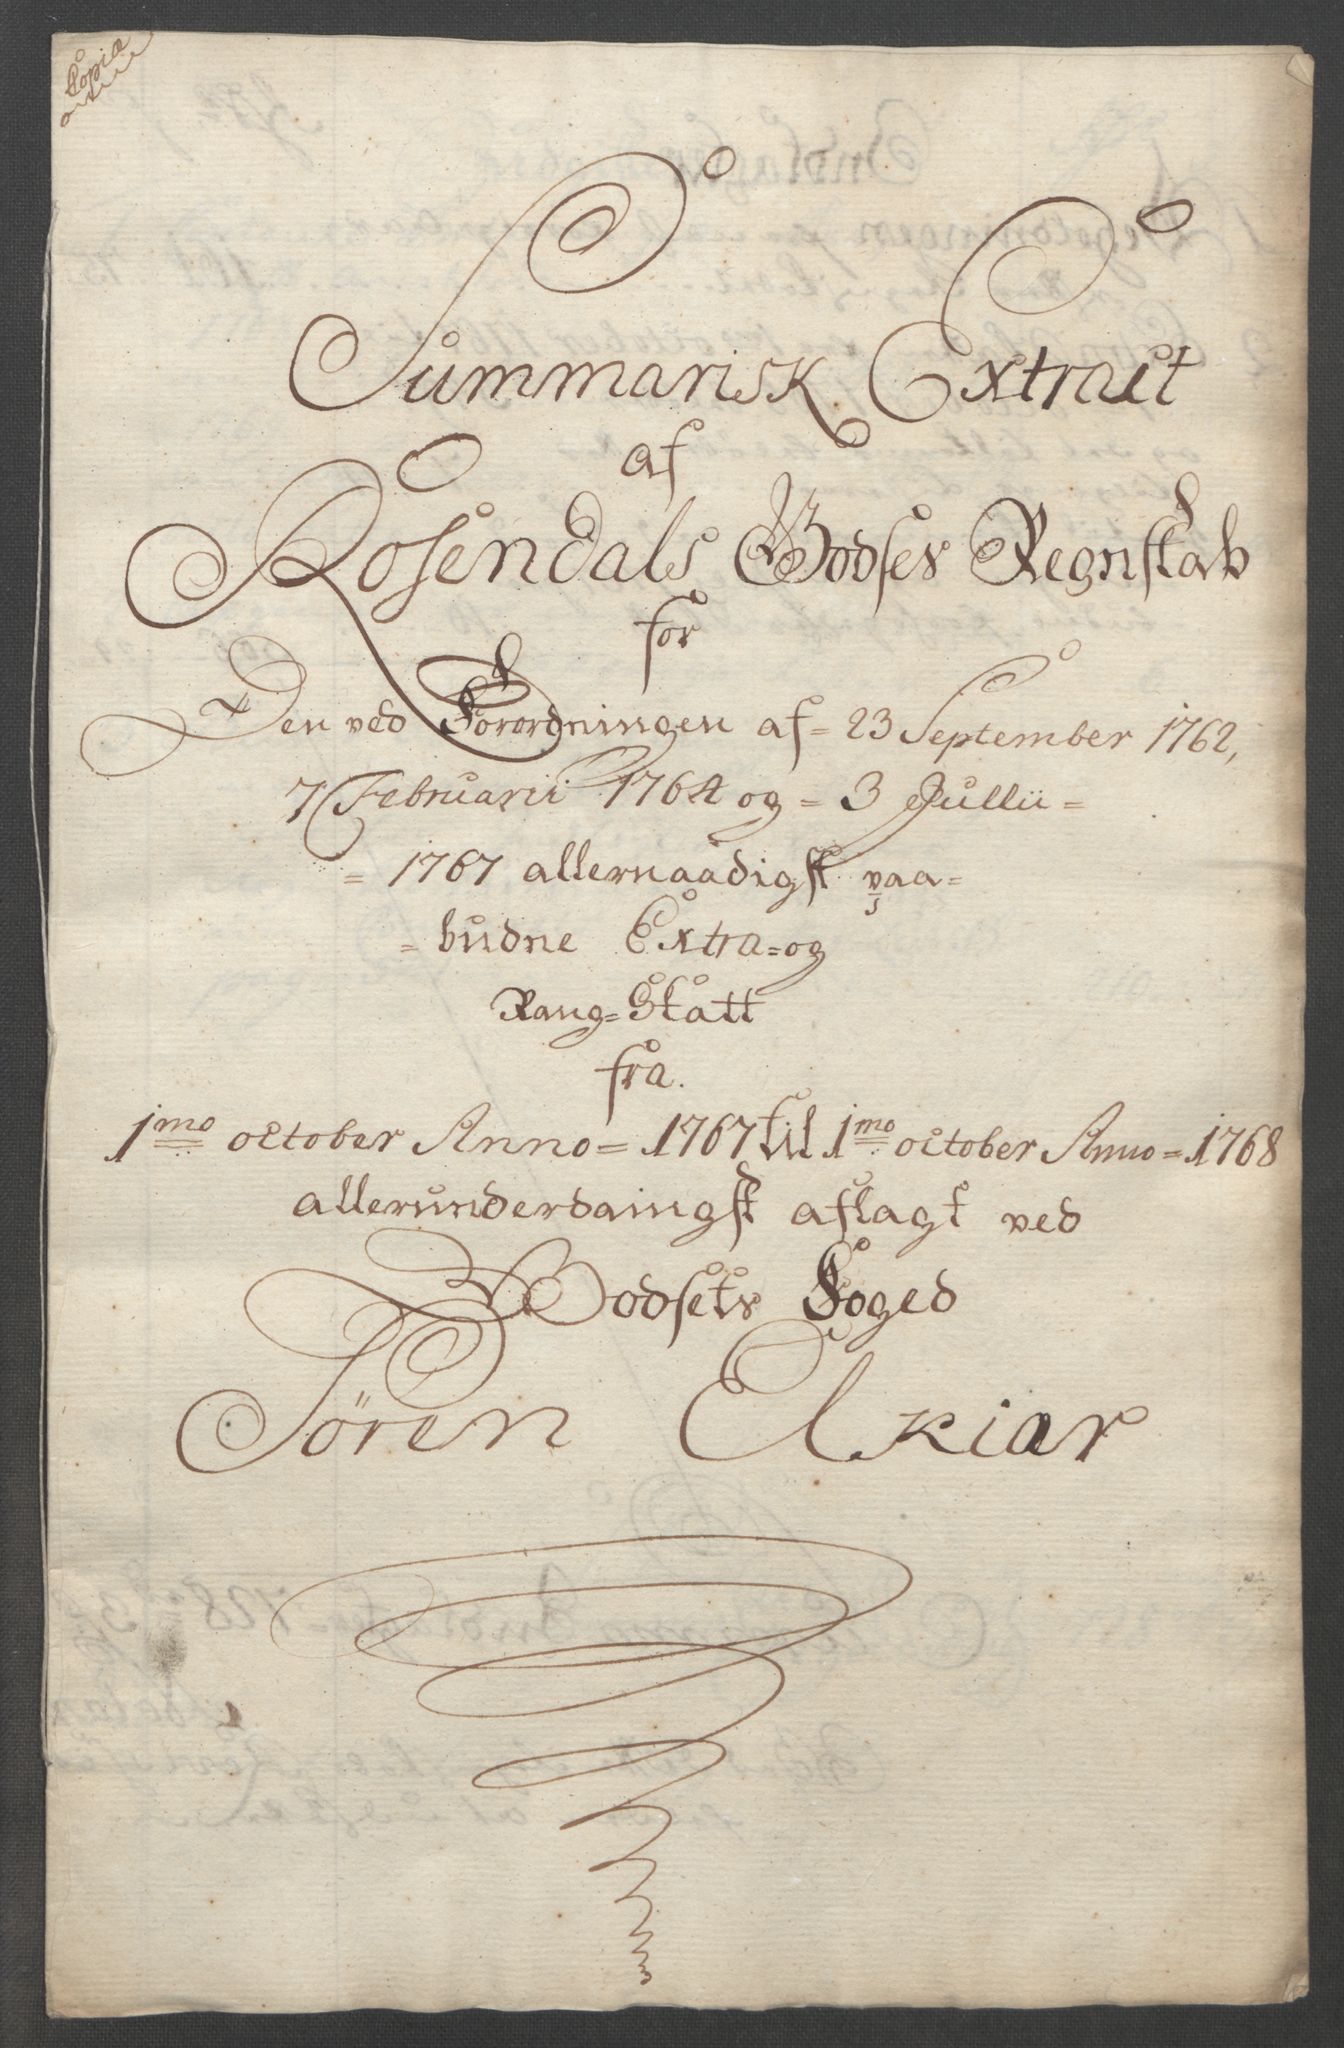 Copia
Summarisk Extract
af
Rosendals Godses Regnskab
for
Den ved Forordningen af= 23 September 1762,
7 Februarii 1764 og = 3 Jullii =
= 1767 allernaadigst paa=
= budne Extra= og
Rang= Skatt
fra.
1mo october Anno= 1767 til 1mo october Anno= 1768
allerunderdaingst aflagt ved
Godsets Foged
Sören Elkiær